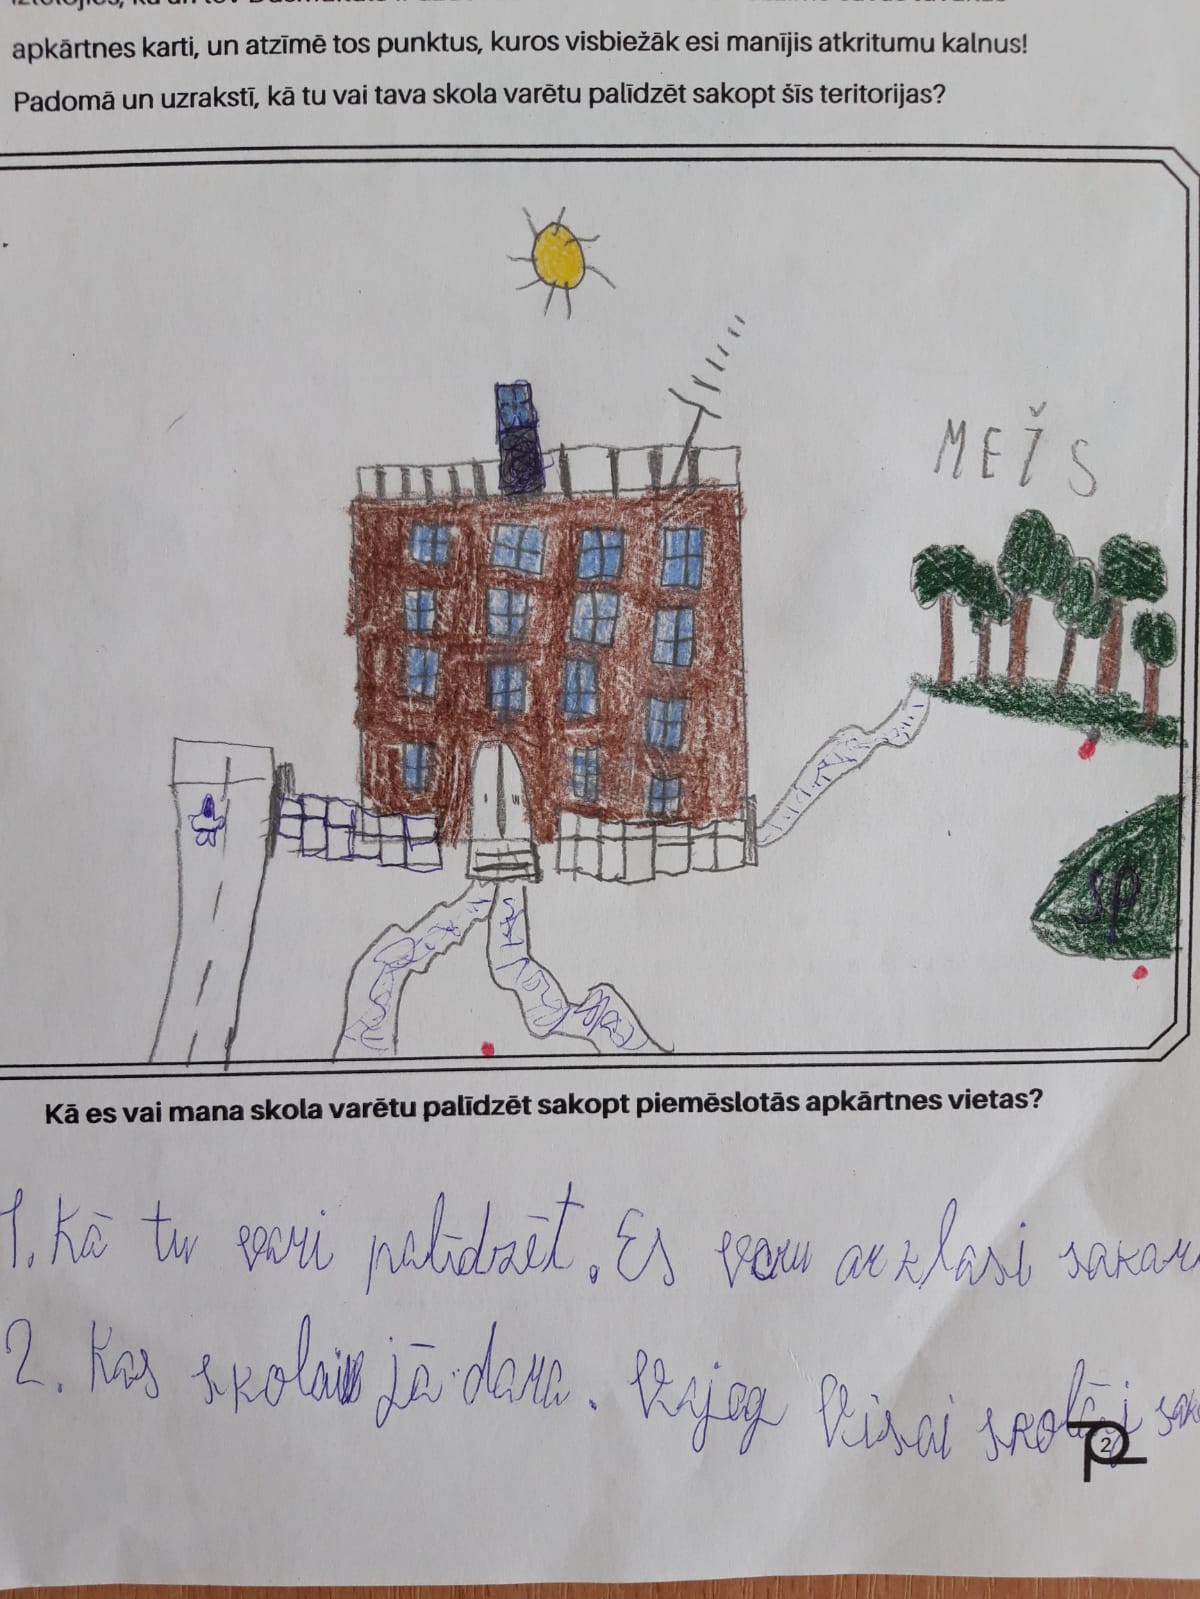 apkārtnes karti, un atzīmē tos punktus, kuros visbiežāk esi manījis atkritumu kalnus!
Padomā un uzrakstī, kā tu vai tava skola varētu palīdzēt sakopt šīs teritorijas?
MEŽS
SP
Kā es vai mana skola varētu palīdzēt sakopt piemēslotās apkārtnes vietas?
1. Kā tu vari palīdzēt. Es varu ar klasi
2. Kas skolai jā dara. Vajeg Visai
2